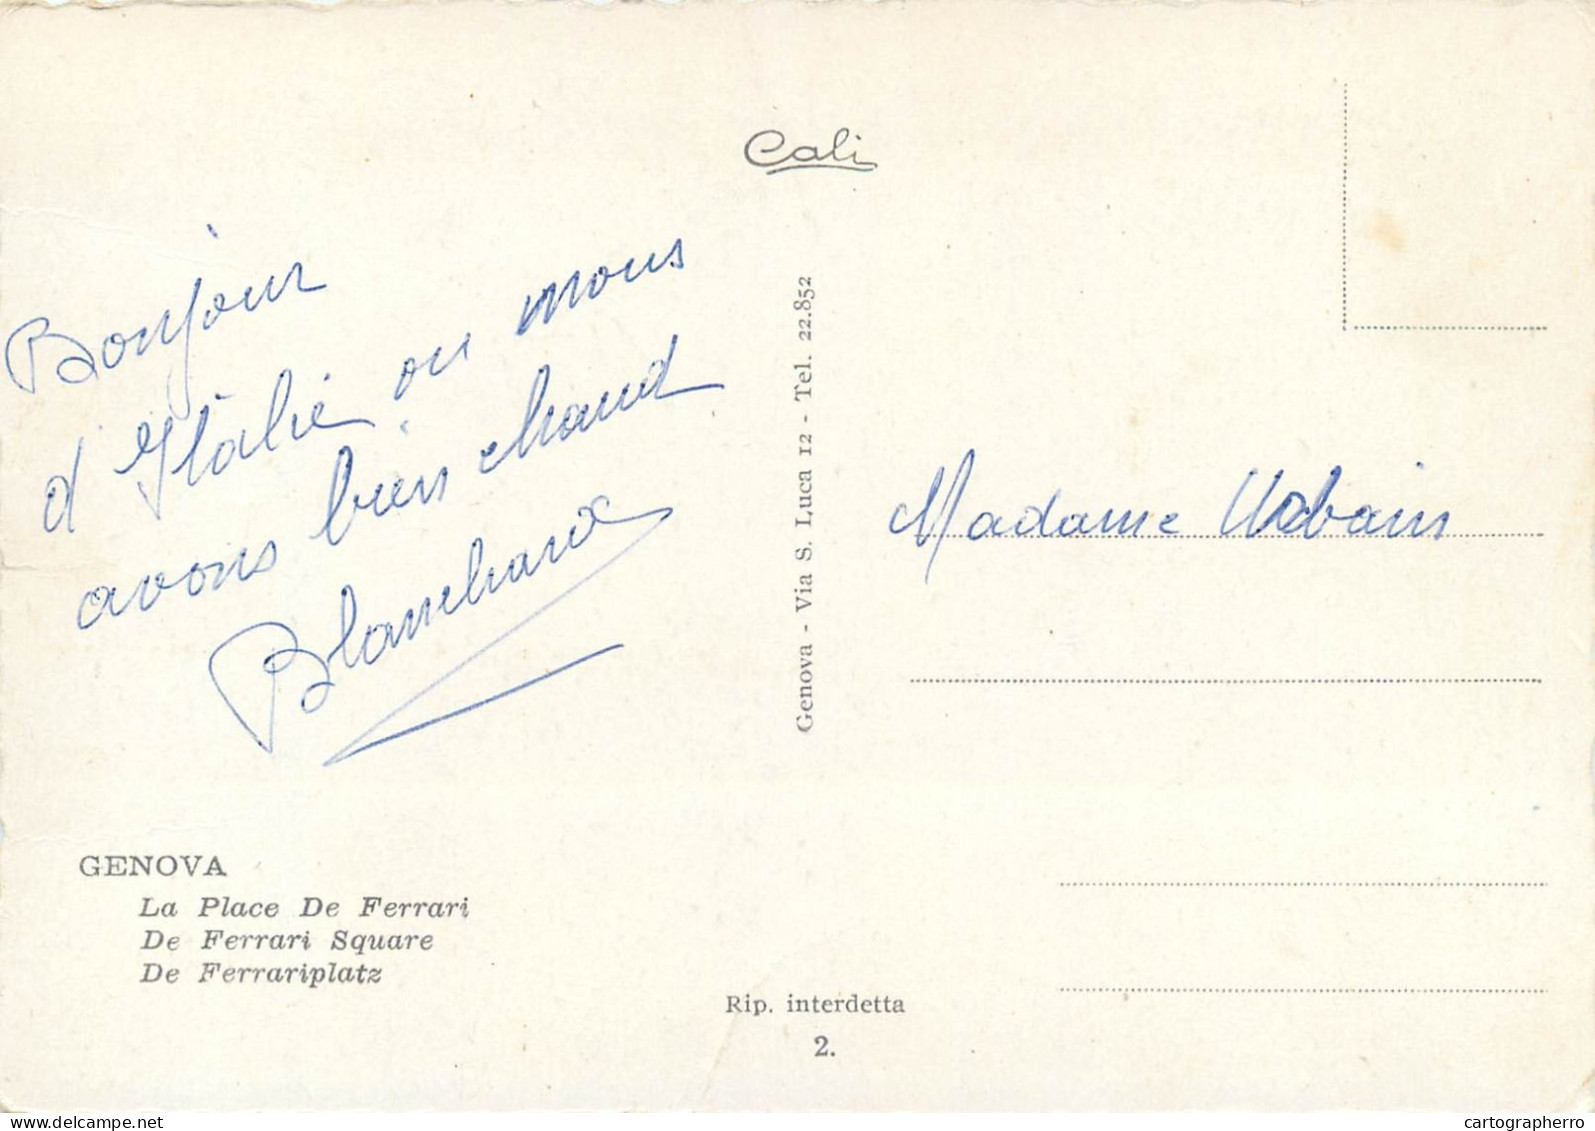 Cali
Bonjour
d'Italie ou nous
avons bien chaud
Blanchard
Genova - Via S. Luca 12 - Tel. 22.852
Madame Urbain
GENOVA
La Place De Ferrari
De Ferrari Square
De Ferrariplatz
Rip. interdetta
2.
delcampe.net
cartographerro